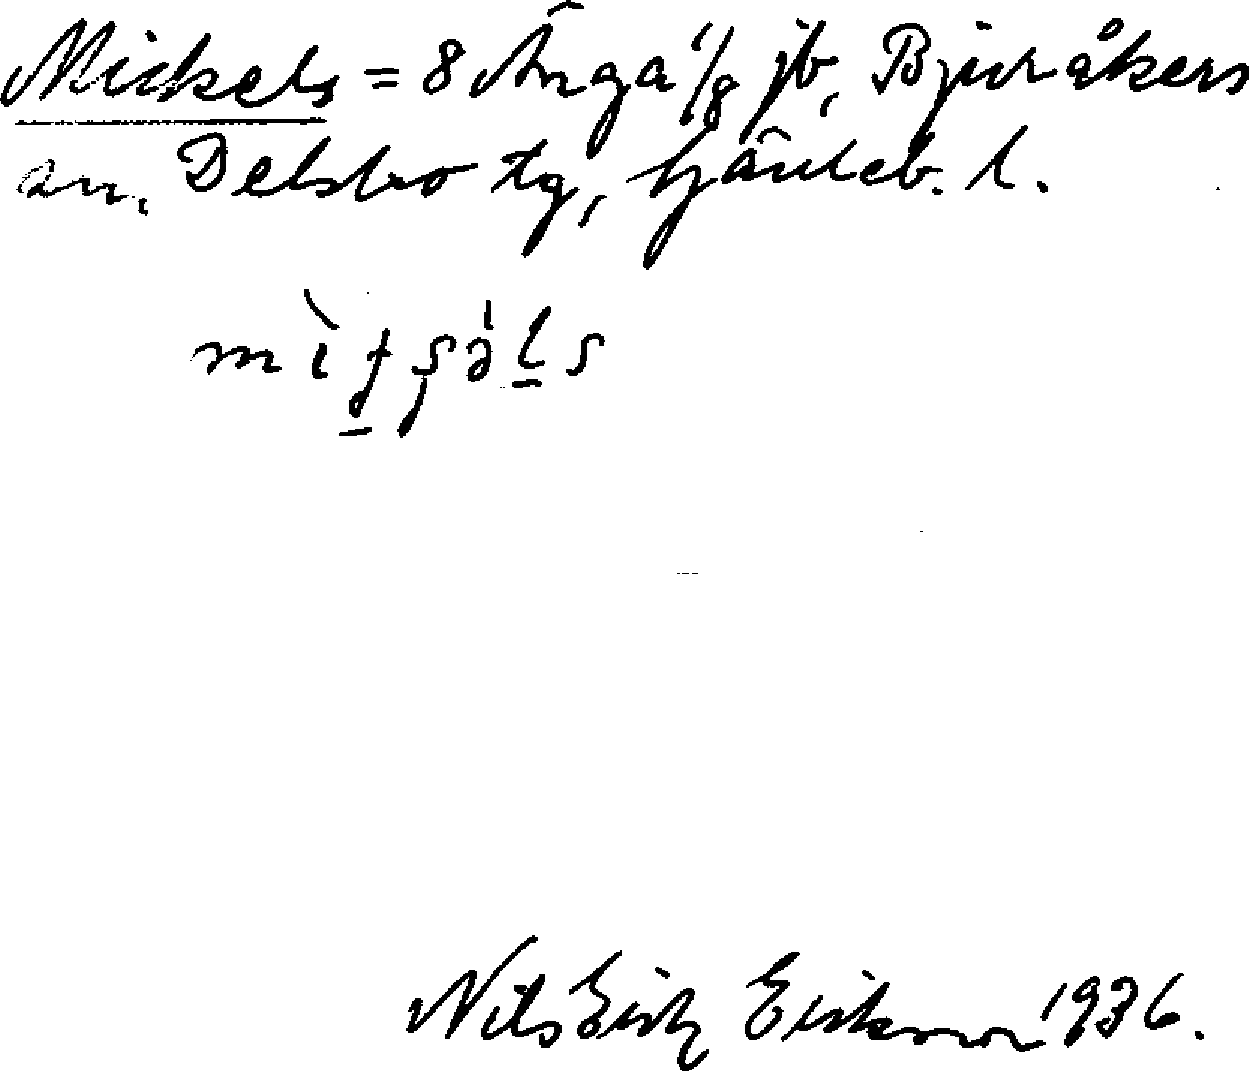 Mickels = 8 Änga 1/8 jb, Bjuråkers
sn, Delsbo tg, Gävleb. l.
Nils Erik Eriksson 1936.